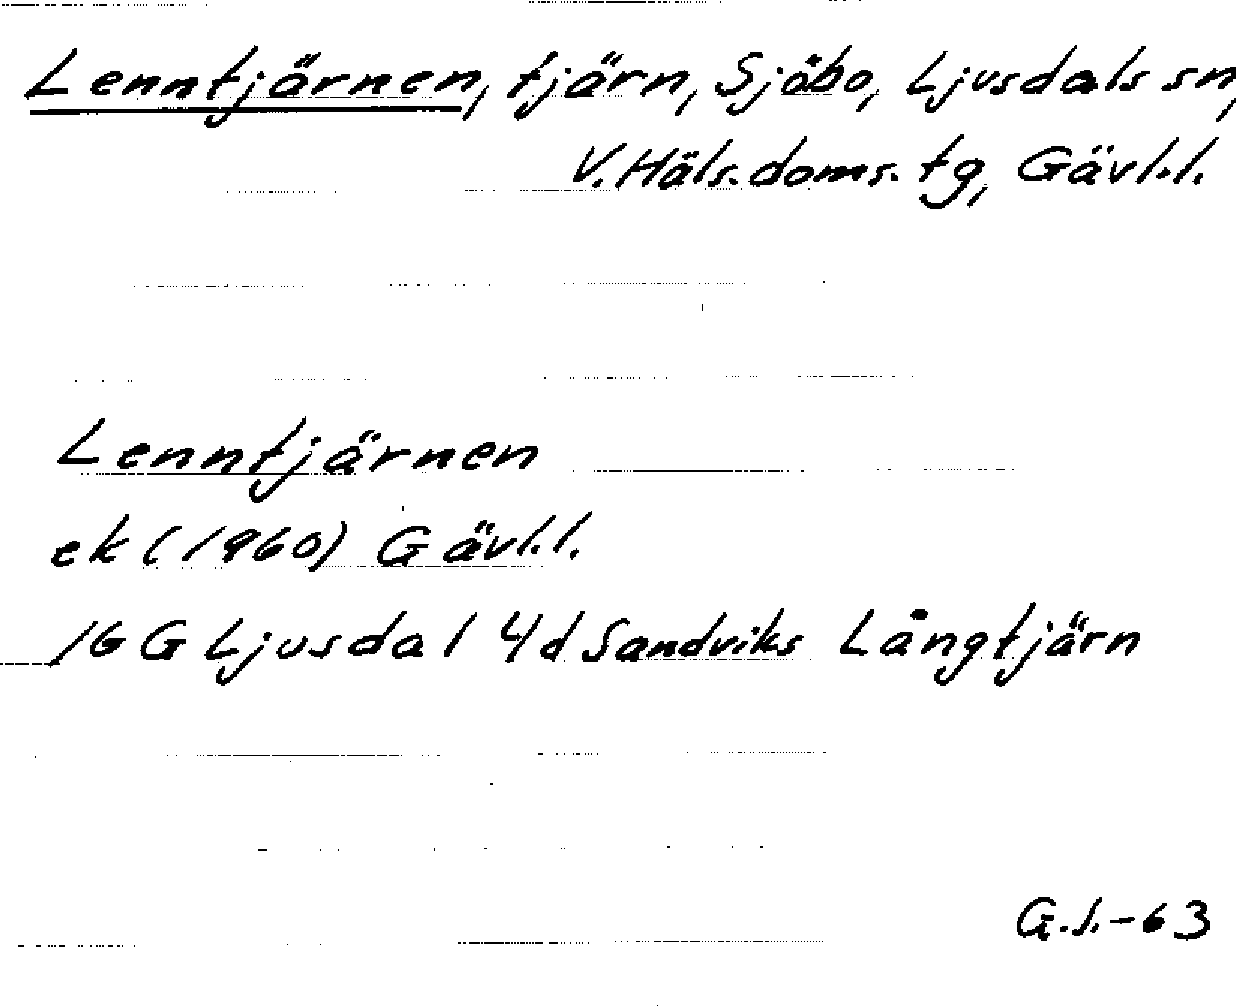 Lenntjärnen, tjärn, Sjöbo, Ljusdals sn,
V. Häls. doms. tg, Gävl.l.
Lenntjärnen
ek (1960) Gävl.l.
16 G Ljusdal 4d Sandviks Långtjärn
G.S.-63